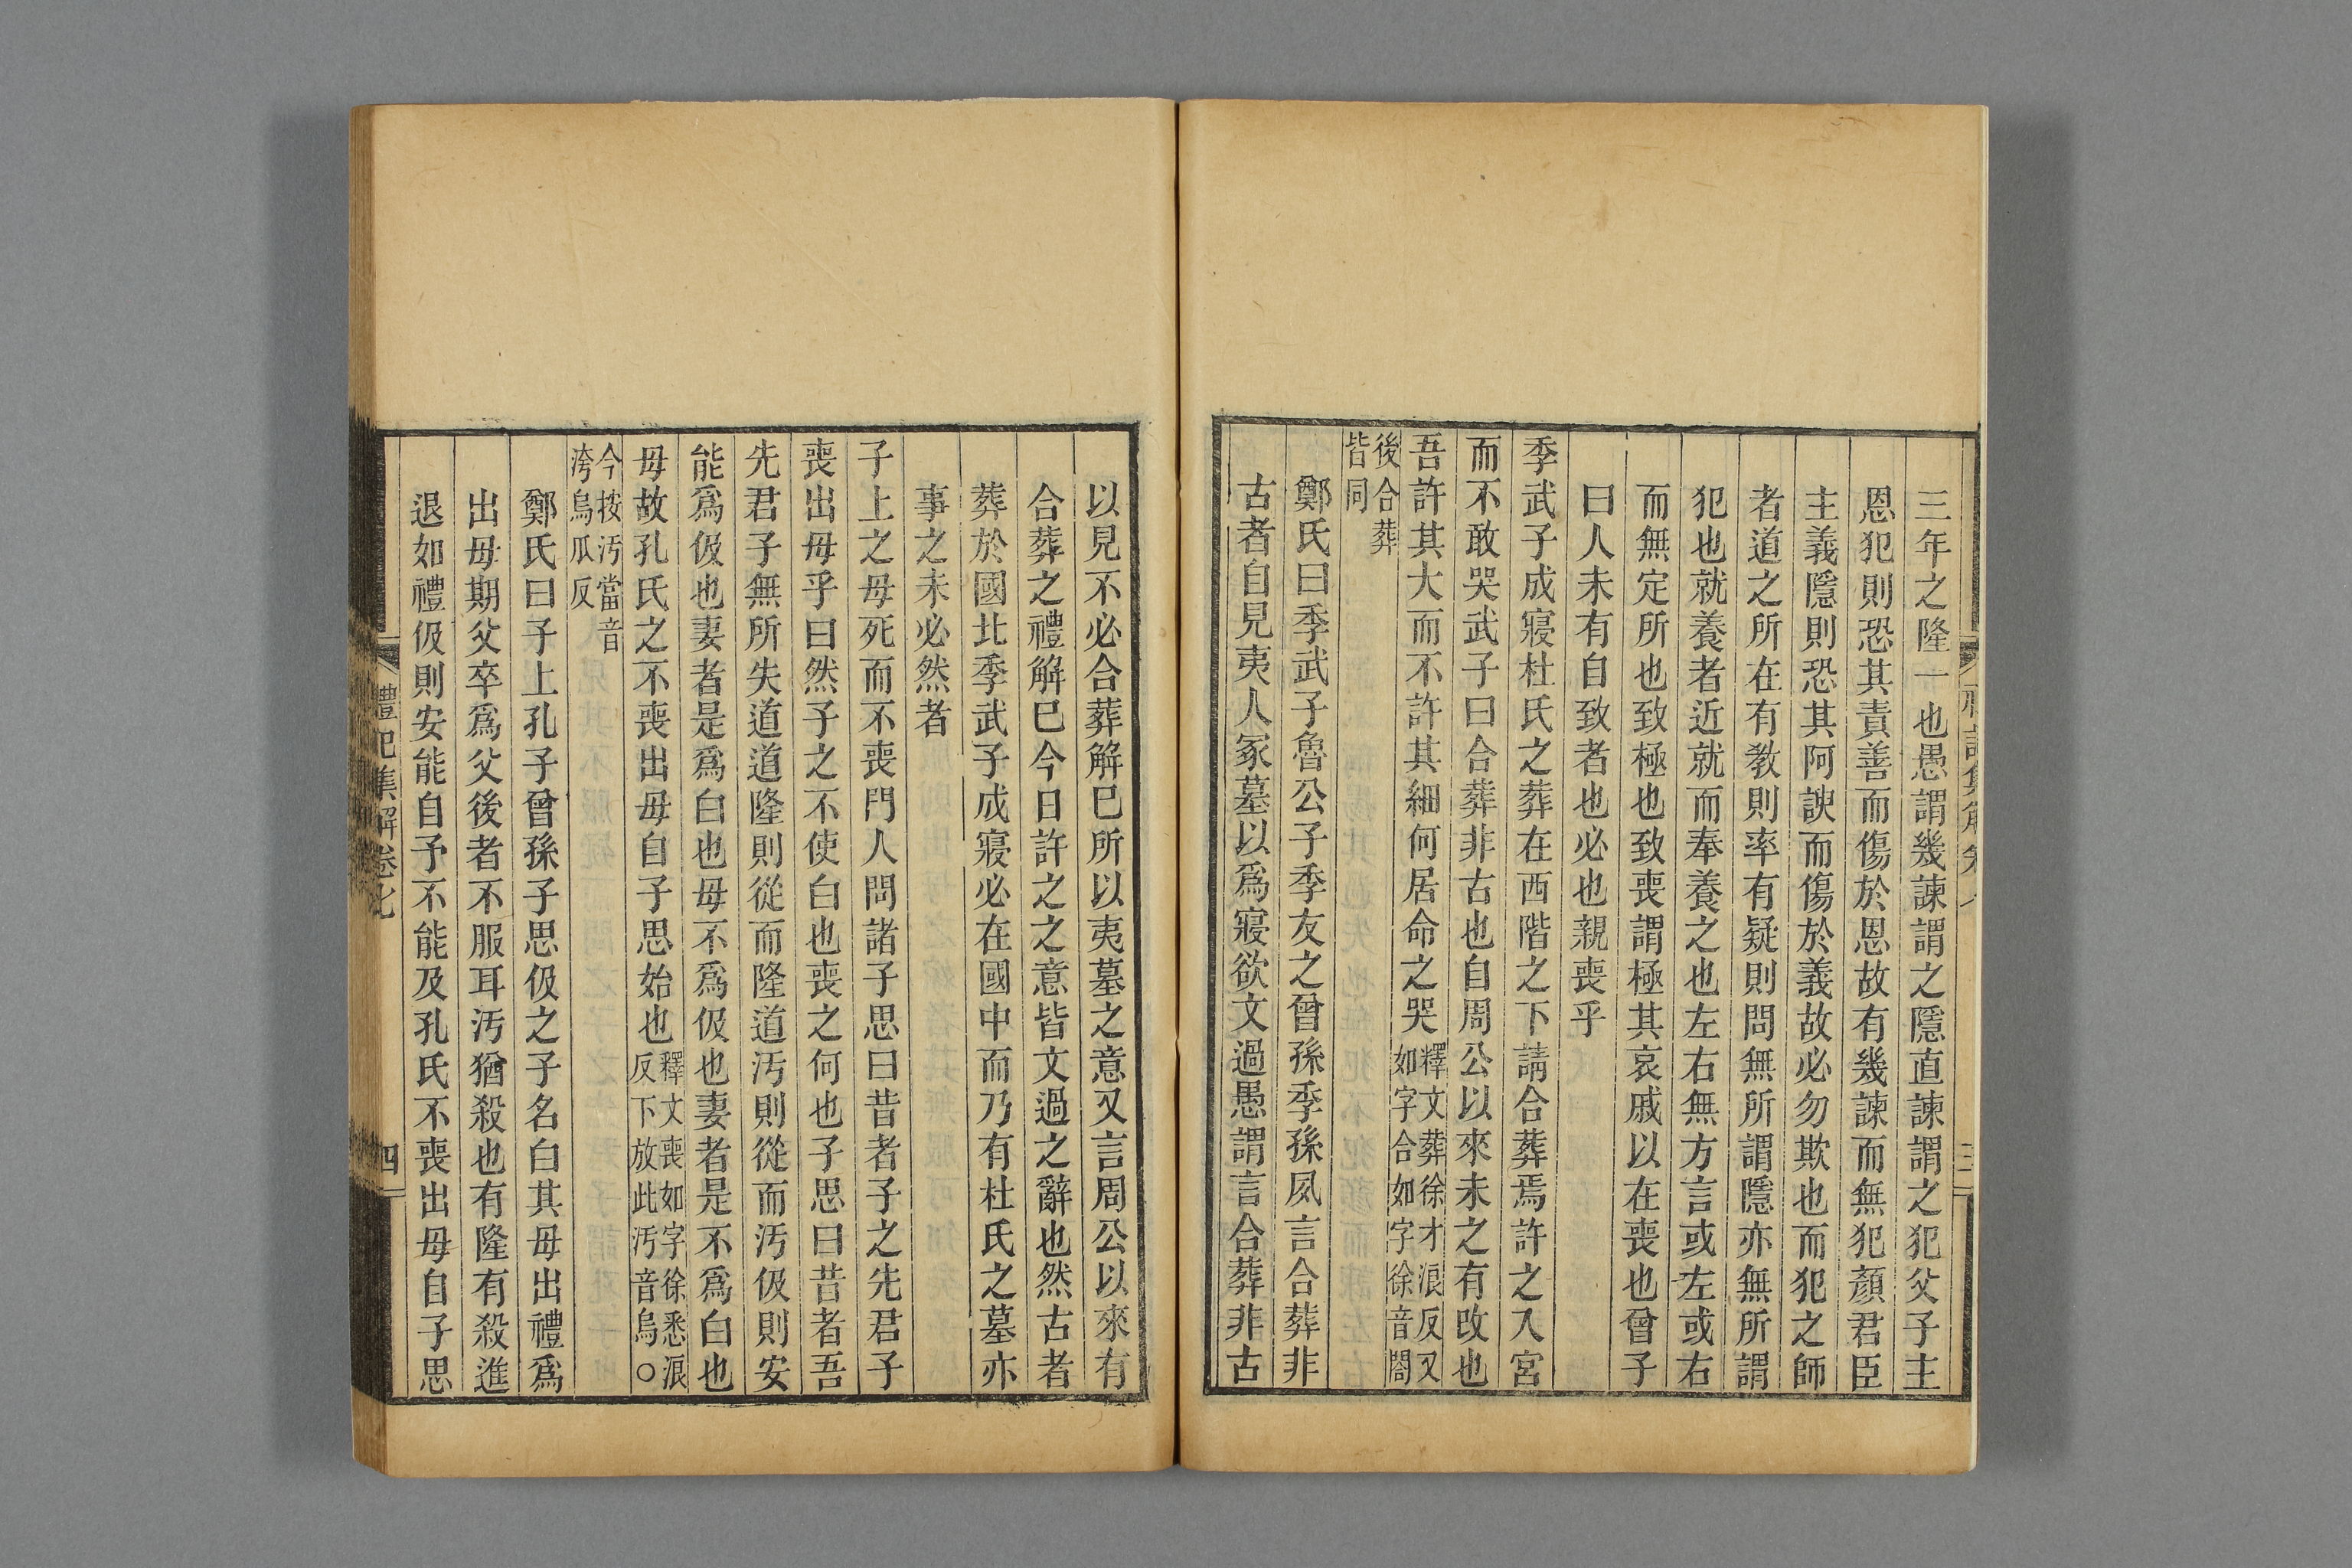 三年之隆一也愚謂幾諫謂之隱直諫謂之犯父子主
恩犯則恐其責善而傷於恩故有幾諫而無犯顏君臣
主義隱則恐其阿諛而傷於義故必勿欺也而犯之師
者道之所在有教則率有疑則問無所謂隱亦無所謂
犯也就養者近就而奉養之也左右無方言或左或右
而無定所也致極也致喪謂極其哀戚以在喪也曾子
曰人未有自致者也必也親喪乎
季武子成寢杜氏之葬在西階之下請合葬焉許之入宮
而不敢哭武子曰合葬非古也自周公以來未之有改也
吾許其大而不許其細何居命之哭釋文葬徐才浪反又如字合如字徐音閤
後合葬皆同
鄭氏曰季武子魯公子季友之曾孫季孫夙言合葬非
古者自見夷人冢墓以爲寢欲文過愚謂言合葬非古
以見不必合葬解巳所以夷墓之意又言周公以來有
合葬之禮解巳今日許之之意皆文過之辭也然古者
葬於國北季武子成寢必在國中而乃有杜氏之墓亦
事之未必然者
子上之母死而不喪門人問諸子思曰昔者子之先君子
喪出母乎曰然子之不使白也喪之何也子思曰昔者吾
先君子無所失道道隆則從而隆道汚則從而汚伋則安
能爲伋也妻者是爲白也母不爲伋也妻者是不爲白也
母故孔氏之不喪出母自子思始也釋文喪如字徐悉浪反下放此汚音烏○
今按汚當音洿烏瓜反
鄭氏曰子上孔子曾孫子思伋之子名白其母出禮爲
出母期父卒爲父後者不服耳汚猶殺也有隆有殺進
退如禮伋則安能自予不能及孔氏不喪出母自子思
禮記集解卷七
四